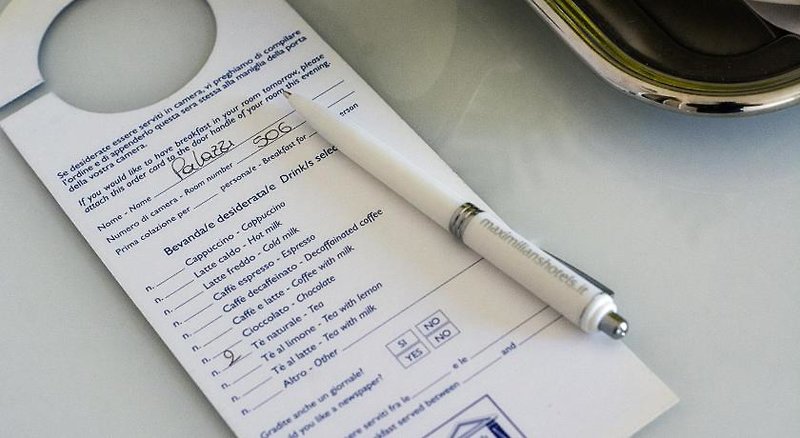 Se desiderate essere serviti in camera, vi preghiamo di compilare
l'ordine e di appenderlo questa sera stessa alla maniglia della porta
della vostra camera.
If you would like to have breakfast in your room tomorrow, please
attach this order card to the door handle of your room this evening.
Nome - Name Palazzi
Numero di camera - Room number 506
Prima colazione per persona/e - Breakfast for erson
Bevanda/e desiderata/e Drink/s selec
n. Cappuccino - Cappuccino
n. Latte caldo - Hot milk
n. Latte freddo - Cold milk
n. Caffè espresso - Espresso
n. Caffè decaffeinato - Decaffoinated coffee
n. Caffè e latte - Coffee with milk
n. Cioccolato - Chocolate
n. 2 Tè naturale - Tea
n. Tè al limone - Tea with lemon
n. Tè al latte - Tea with milk
n. Altro - Other
Gradite anche un giornale? SI NO
ould you like a newspaper? YES NO
ere serviti fra le e le
kfast served between and
maximilianshotels.it